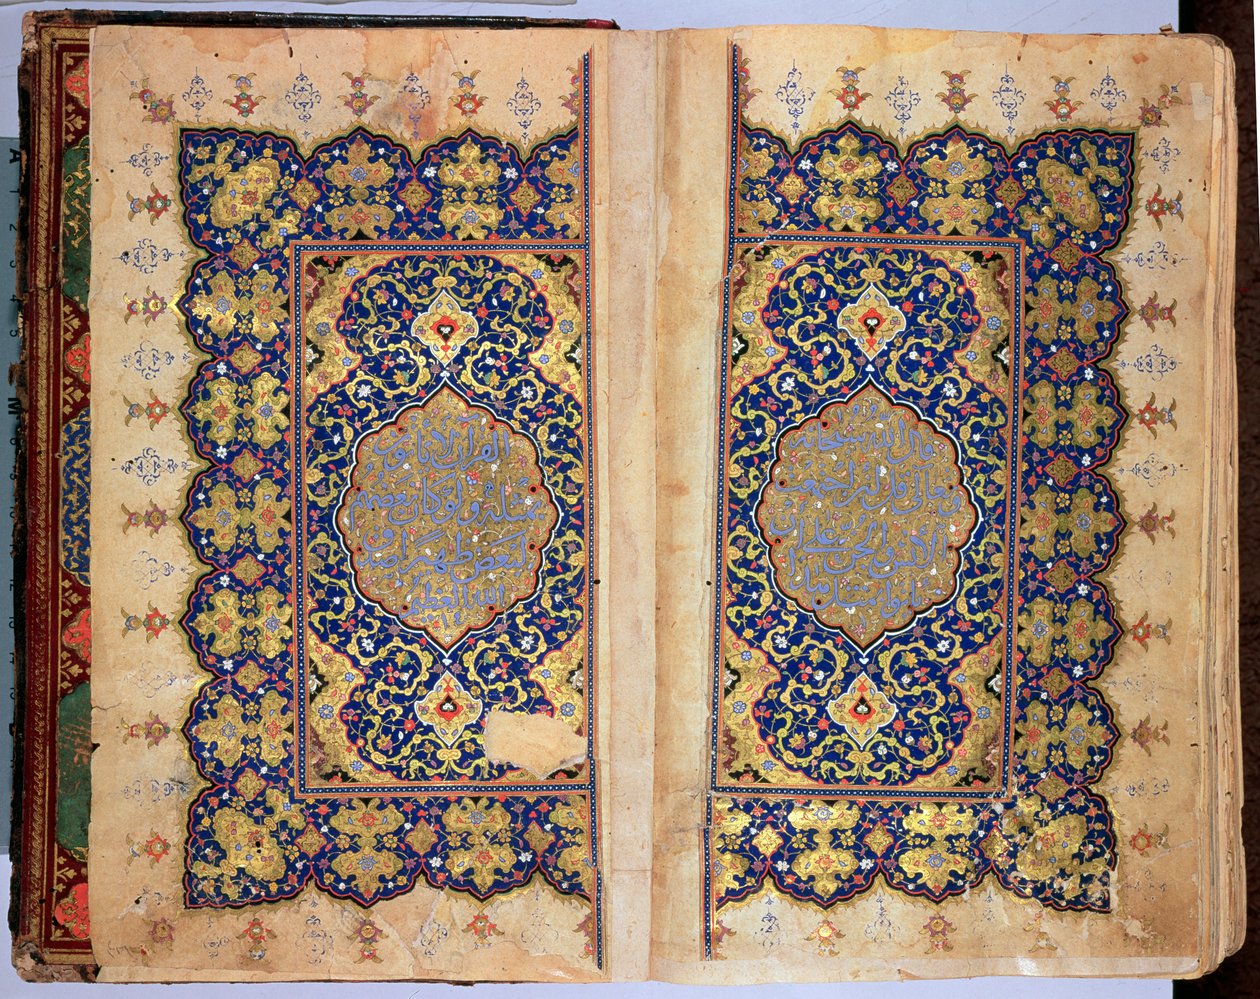 قال الله سبحانه
وتعالى قل لئن اجتمعت
الانس والجن على ان
ياتوا بمثل هذا
القران لا ياتون
بمثله ولو كان بعضهم
لبعض ظهيرا صدق
الله العظيم